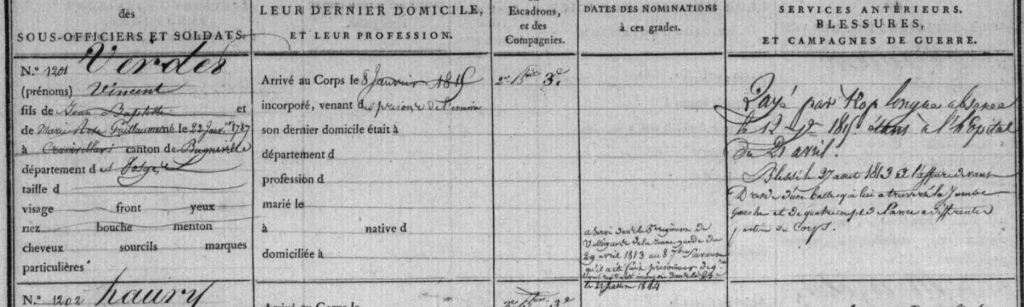 des
SOUS-OFFICIERS ET SOLDATS.
LEUR DERNIER DOMICILE,
ET LEUR PROFESSION.
Escadrons,
et des
Compagnies.
DATES DES NOMINATIONS
à ces grades.
SERVICES ANTÉRIEURS.
BLESSURES,
ET CAMPAGNES DE GUERRE.
N.º 1201 Verdés
(prénoms) Vincent
fils de Jean Baptiste et
de Marie Rose Guillaumené le 22 Janv. 1787
à canton de
département d es Vosges
taille d
visage front yeux
nez bouche menton
cheveux sourcils marques
particulières
Arrivé au Corps le 8 Janvier 1815
incorporé, venant d es prisons de l'ennemi
son dernier domicile était à
département d
profession d
marié le
à native d
domiciliée à
2e 3e
a servi dans le 5e régiment de
Voltigeurs de la jeune garde du
29 avril 1813 au 8 7bre suivant
qu'il a été fait prisonnier de gre
Rayé par trop longue absence
le 12 1815 étant à l'hôpital
du 21 avril.
Blessé le 27 aout 1813 à l'affaire devant
Dresde d'une balle qui lui a traversé la jambe
gauche et de quatre coups de lance à différentes
parties du corps.
N.º 1202 haury
Arrivé au Corps le
3e